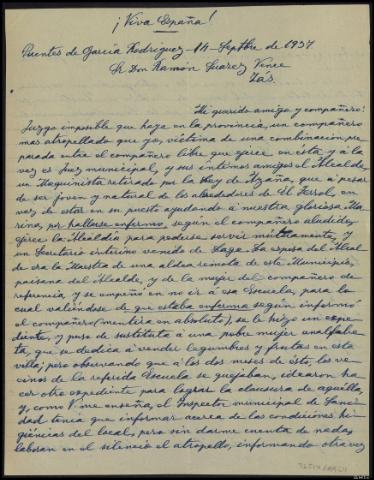 ¡Viva España!
Puentes de García Rodríguez - 14 - Septbre de 1937
Sr Don Ramón Suarez Vence
Zás.
Mi querido amigo y compañero:
Juzgo imposible que haya en la provincia, un compañero
mas atropellado que yo, víctima de una combinación pre-
parada entre el compañero libre que ejerce en ésta y á la
vez es Juez municipal, y sus íntimos amigos el Alcalde,
un Maquinista retirado por la Ley de Azaña, que a pesar
de ser joven y natural de los alrededores de El Ferrol, en
vez de estar en su puesto ayudando á nuestra gloriosa Ma-
rina, por hallarse enfermo, según el compañero aludido,
ejerce la Alcaldía para poderse servir mutuamente, y
un Secretario interino venido de Lage. La esposa del Alcal-
de era la Maestra de una aldea remota de este Municipio,
paisana del Alcalde, y de la mujer del compañero de
referencia, y se empeñó en no ir á esa Escuela, para lo
cual valiéndose de que estaba enferma según informó
el compañero (mentira en absoluto), se le hizo un expe-
diente, y puso de sustituta á una pobre mujer analfabe-
ta, que se dedica á vender legumbres y frutas en esta
villa; pero observando que á los dos meses de ésto, los ve-
cinos de la referida Escuela se quejaban, idearon ha-
cer otro expediente para lograr la clausura de aquélla,
y, como V. me enseña, el Inspector municipal de Sani-
dad tenía que informar acerca de las condiciones hi-
giénicas del local, pero sin darme cuenta de nada,
laboran en el silencio el atropello, informando otra vez